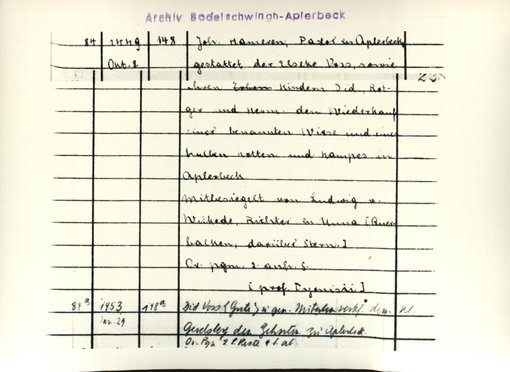 Archiv Bodelschwingh-Aplerbeck
84 1449 148 Joh. Hameren, Pastor zu Aplerbeck,
Okt. 2 gestattet der Elseke Voss, sowie
ihren Erben Kindern Did, Rot-
ger und Herm. den Wiederkauf
einer benannten Wiese und eines
halben Kotten und Kampes in
Aplerbeck
Mitbesiegelt von Ludwig v.
Wickede, Richter in Unna
backen, darüber Stern.]
Or. pgm. 2 anh. S.
84a 1453 148a Did Voss (Grete) u. gen. dem
Jan. 29 den Zehnten zu Aplerbeck.
Or. Pgm 2 S. 1 ab.